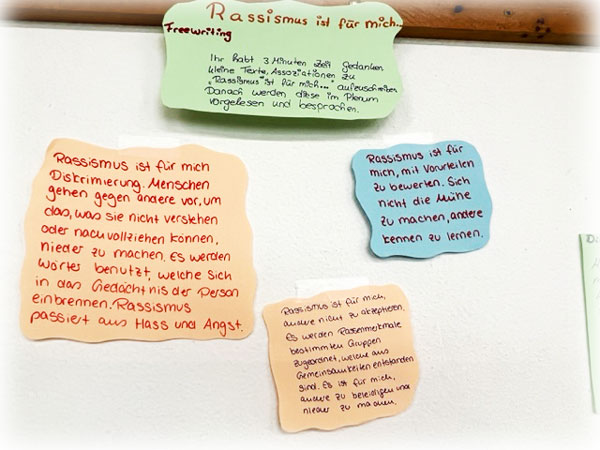 Rassismus ist für mich...
Freewriting
Ihr habt 3 Minuten Zeit Gedanken
kleine Texte, Assoziationen zu
„Rassismus ist für mich..." aufzuschreiben
Danach werden diese im Plenum
vorgelesen und besprochen.
Rassismus ist für mich
Diskrimierung. Menschen
gehen gegen andere vor, um
das, was sie nicht verstehen
oder nachvollziehen können,
nieder zu machen. Es werden
Wörter benutzt, welche sich
in das Gedächtnis der Person
einbrennen. Rassismus
passiert aus Hass und Angst.
Rassismus ist für
mich, mit Vorurteilen
zu bewerten. Sich
nicht die Mühe
zu machen, andere
kennen zu lernen.
Rassismus ist für mich,
andere nicht zu akzeptieren.
Es werden Rassenmerkmale
bestimmten Gruppen
zugeordnet, welche aus
Gemeinsamkeiten entstanden
sind. Es ist für mich,
andere zu beleidigen und
nieder zu machen.